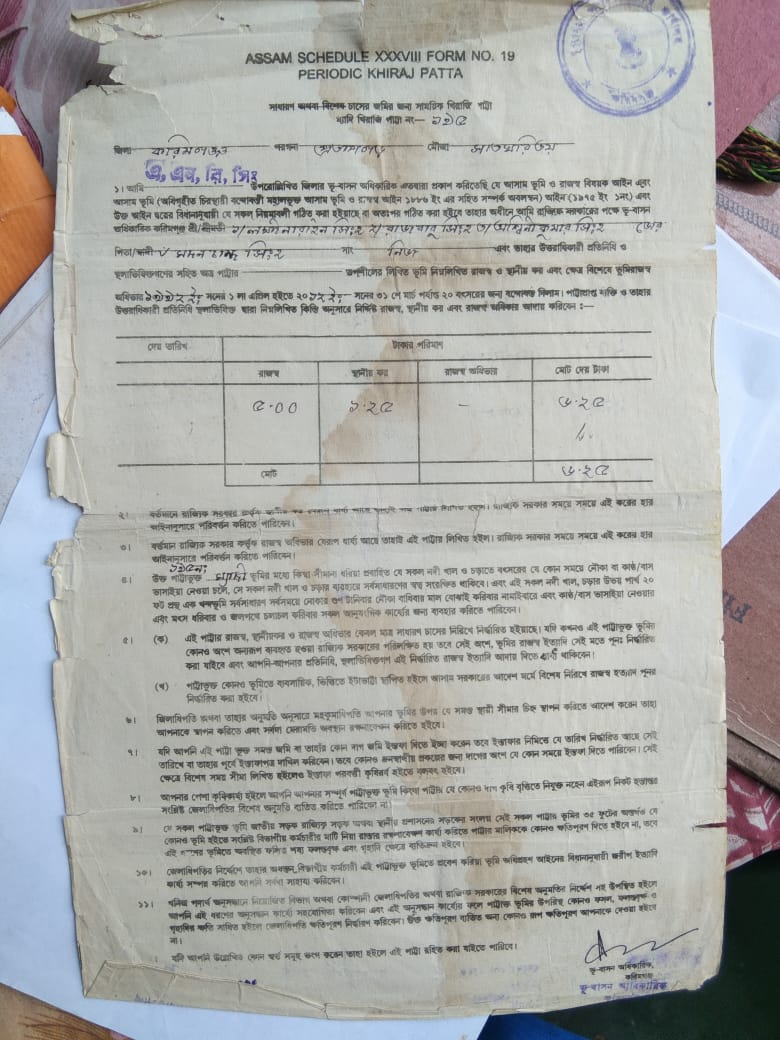 ASSAM SCHEDULE XXXVIII FORM NO. 19
PERIODIC KHIRAJ PATTA
সাধারণ অথবা বিশেষ চাসের জমির জন্য সাময়িক খিরাজি পাট্টা
ম্যাদি খিরাজি পাট্টা নং—
জিলা করিমগঞ্জ পরগনা প্রতাপগড় মৌজা
১। আমি উপরোল্লিখিত জিলার ভূ-বাসন অধিকারিক এতদ্বারা প্রকাশ করিতেছি যে আসাম ভূমি ও রাজস্ব বিষয়ক আইন এবং
আসাম ভূমি (অধিগৃহীত চিরস্থায়ী বন্দোবস্তী মহালভূক্ত আসাম ভূমি ও রাজস্ব আইন ১৮৮৬ ইং এর সহিত সম্পর্ক অবলম্বন) আইন (১৯৭৫ ইং ১নং) এবং
উক্ত আইন দ্বয়ের বিধানানুযায়ী যে সকল নিয়মাবলী গঠিত করা হইয়াছে বা অতঃপর গঠিত করা হইবে তাহার অধীনে আমি রাজ্যিক সরকারের পক্ষে ভূ-বাসন
অধিকারিক করিমগঞ্জ শ্রী/শ্রীমতী
পিতা/স্বামী সিংহ সাং নিজ এবং তাহার উত্তরাধিকারী প্রতিনিধি ও
স্থলাভিষিক্তগণের সহিত অত্র পাট্টার উপশীলের লিখিত ভূমি নিম্নলিখিত রাজস্ব ও স্থানীয় কর এবং ক্ষেত্র বিশেষে ভূমিরাজস্ব
অধিভার সনের ১ লা এপ্রিল হইতে সনের ৩১ শে মার্চ পর্যন্ত ২০ বৎসরের জন্য বন্দোবস্ত দিলাম। পাট্টাপ্রাপ্ত ব্যক্তি ও তাহার
উত্তরাধিকারী প্রতিনিধি স্থলাভিষিক্ত দ্বারা নিম্নলিখিত কিস্তি অনুসারে নির্দ্ধিষ্ট রাজস্ব, স্থানীয় কর এবং রাজস্ব অধিভার আদায় করিবেন :—
দেয় তারিখ টাকার পরিমাণ
রাজস্ব স্থানীয় কর রাজস্ব অধিভার মোট দেয় টাকা
৫·০০ ১·২৫ – ৬·২৫
মোট ৬·২৫
২। বর্তমানে রাজ্যিক সরকার রাজ্যিক সরকার সময়ে সময়ে এই করের হার
আইনানুসারে পরিবর্তন করিতে পারিবেন।
৩। বর্তমান রাজ্যিক সরকার কর্তৃক রাজস্ব অধিভার যেরূপ ধার্য্য আছে তাহাই এই পাট্টায় লিখিত হইল। রাজ্যিক সরকার সময়ে সময়ে এই করের হার
আইনানুসারে পরিবর্তন করিতে পারিবেন।
৪। উক্ত পাট্টাভুক্ত ভূমির মধ্যে কিম্বা সীমানা ধরিয়া প্রবাহিত যে সকল নদী খাল ও চড়াতে বৎসরের যে কোন সময়ে নৌকা বা কাষ্ঠ/বাস
ভাসাইয়া নেওয়া চলে, সে সকল নদী খাল ও চড়ার ব্যবহারে সর্বসাধারণের স্বত্ব সংরক্ষিত থাকিবে। এবং এই সকল নদী খাল, চড়ার উভয় পার্শ্ব ২০
ফুট প্রস্থ এক খন্ড ভূমি সর্বসাধারণ সর্বসময়ে নৌকার গুণ টানিবার নৌকা বাধিবার মাল বোঝাই করিবার নামাইবারে এবং কাষ্ঠ/বাস ভাসাইয়া নেওয়ার
এবং মৎস ধরিবার ও জলপথে চলাচল করিবার সকল আনুষংগিক কার্য্যের জন্য ব্যবহার করিতে পারিবেন।
৫। (ক) এই পাট্টার রাজস্ব, স্থানীয়কর ও রাজস্ব অধিভার কেবল মাত্র সাধারণ চাসের নিরিখে নির্দ্ধারিত হইয়াছে। যদি কখনও এই পাট্টাভুক্ত ভূমির
কোনও অংশ অন্যরূপ ব্যবহৃত হওয়া রাজ্যিক সরকারের পরিলক্ষিত হয় তবে সেই অংশ, ভূমির রাজস্ব ইত্যাদি সেই মতে পুনঃ নির্দ্ধারিত
করা যাইবে এবং আপনি-আপনার প্রতিনিধি, স্থলাভিষিক্তগণ এই নির্দ্ধারিত রাজস্ব ইত্যাদি আদায় দিতে বাধ্য থাকিবেন।
(খ) পাট্টাভুক্ত কোনও ভূমিতে ব্যবসায়িক, ভিত্তিতে ইটাভাট্টা স্থাপিত হইলে আসাম সরকারের আদেশ মর্মে বিশেষ নিরিখে রাজস্ব ইত্যাদি পুনর
নির্দ্ধারিত করা হইবে।
৬। জিলাধিপতি অথবা তাহার অনুমতি অনুসারে মহকুমাধিপতি আপনার ভূমির উপর যে সমস্ত স্থায়ী সীমার চিহ্ন স্থাপন করিতে আদেশ করেন তাহা
আপনাকে স্থাপন করিতে এবং সর্বদা মেরামতি অবস্থান রক্ষণাবেক্ষণ করিতে হইবে।
৭। যদি আপনি এই পাট্টা ভুক্ত সমস্ত জমি বা তাহার কোন দাগ জমি ইস্তফা দিতে ইচ্ছা করেন তবে ইস্তাফার নিমিত্তে যে তারিখ নির্দ্ধারিত আছে সেই
তারিখে বা তাহার পূর্বে ইস্তাফাপত্র দাখিল করিবেন। তবে কোনও দাগের অংশ যে কোন সময়ে ইস্তফা দিতে পারিবেন। সেই
ক্ষেত্রে বিশেষ সময় সীমা লিখিত হইলেও ইস্তফা পরবর্তী কৃষিবর্ষ হইতে বলবৎ হইবে।
৮। আপনার পেশা কৃষিকার্য্য হইলে আপনি আপনার সম্পূর্ণ পাট্টাভুক্ত ভূমি কিংবা পাট্টার যে কোনও দাগ কৃষি বৃত্তিতে নিযুক্ত নহেন এইরূপ নিকট হস্তান্তর
সংশ্লিষ্ট জেলাধিপতির বিশেষ অনুমতি ব্যতিত করিতে পারিবেন না।
৯। যে সকল পাট্টাভুক্ত ভূমি জাতীয় সড়ক রাজ্যিক সড়ক অথবা স্থানীয় প্রশাসনের সড়কের সংলগ্ন সেই সকল পাট্টার ভূমির ৩৫ ফুটের অন্তর্গত যে
কোনও ভূমি হইতে সংশ্লিষ্ট বিভাগীয় কর্মচারীর মাটি নিয়া রাস্তার রক্ষণাবেক্ষণ কার্য্য করিতে পাট্টার মালিককে কোনও ক্ষতিপূরণ দিতে হইবে না, তবে
এই ধরণের ভূমিতে অবস্থিত ফলিত শষ্য ফলবৃক্ষ এবং গৃহাদি ক্ষেত্রে ব্যতিক্রম হইবে।
১০। জেলাধিপতির নির্দেশে তাহার অধস্তন বিভাগীয় কর্মচারী এই পাট্টাভুক্ত ভূমিতে প্রবেশ করিয়া ভূমি অধিগ্রহণ আইনের বিধানানুযায়ী জরীপ ইত্যাদি
কার্য্য সম্পন্ন করিতে আপনি সর্বদা সাহায্য করিবেন।
১১। খনিজ পদার্থ অনুসন্ধানে নিয়োজিত বিভাগ অথবা কোম্পানী জেলাধিপতির অথবা রাজ্যিক সরকারের বিশেষ অনুমতির নির্দেশ সহ উপস্থিত হইলে
আপনি এই ধরণের অনুসন্ধান কার্য্যে সহযোগিতা করিবেন এবং এই অনুসন্ধান কার্য্যের ফলে পাট্টার ভূমির উপরিস্থ কোনও ফসল, ফলবৃক্ষ ও
গৃহাদির ক্ষতি সাধিত হইলে জেলাধিপতি ক্ষতিপূরণ নির্দ্ধারণ করিবেন। উক্ত ক্ষতিপূরণ ব্যতিত অন্য কোনও রূপ ক্ষতিপূরণ আপনাকে দেওয়া হইবে
না।
যদি আপনি উল্লেখিত কোন স্বর্ত সমূহ ভংগ করেন তাহা হইলে এই পাট্টা রহিত করা যাইতে পারিবে।
ভূ-বাসন অধিকারিক,
করিমগঞ্জ
ভূ-বাসন অধিকারিক